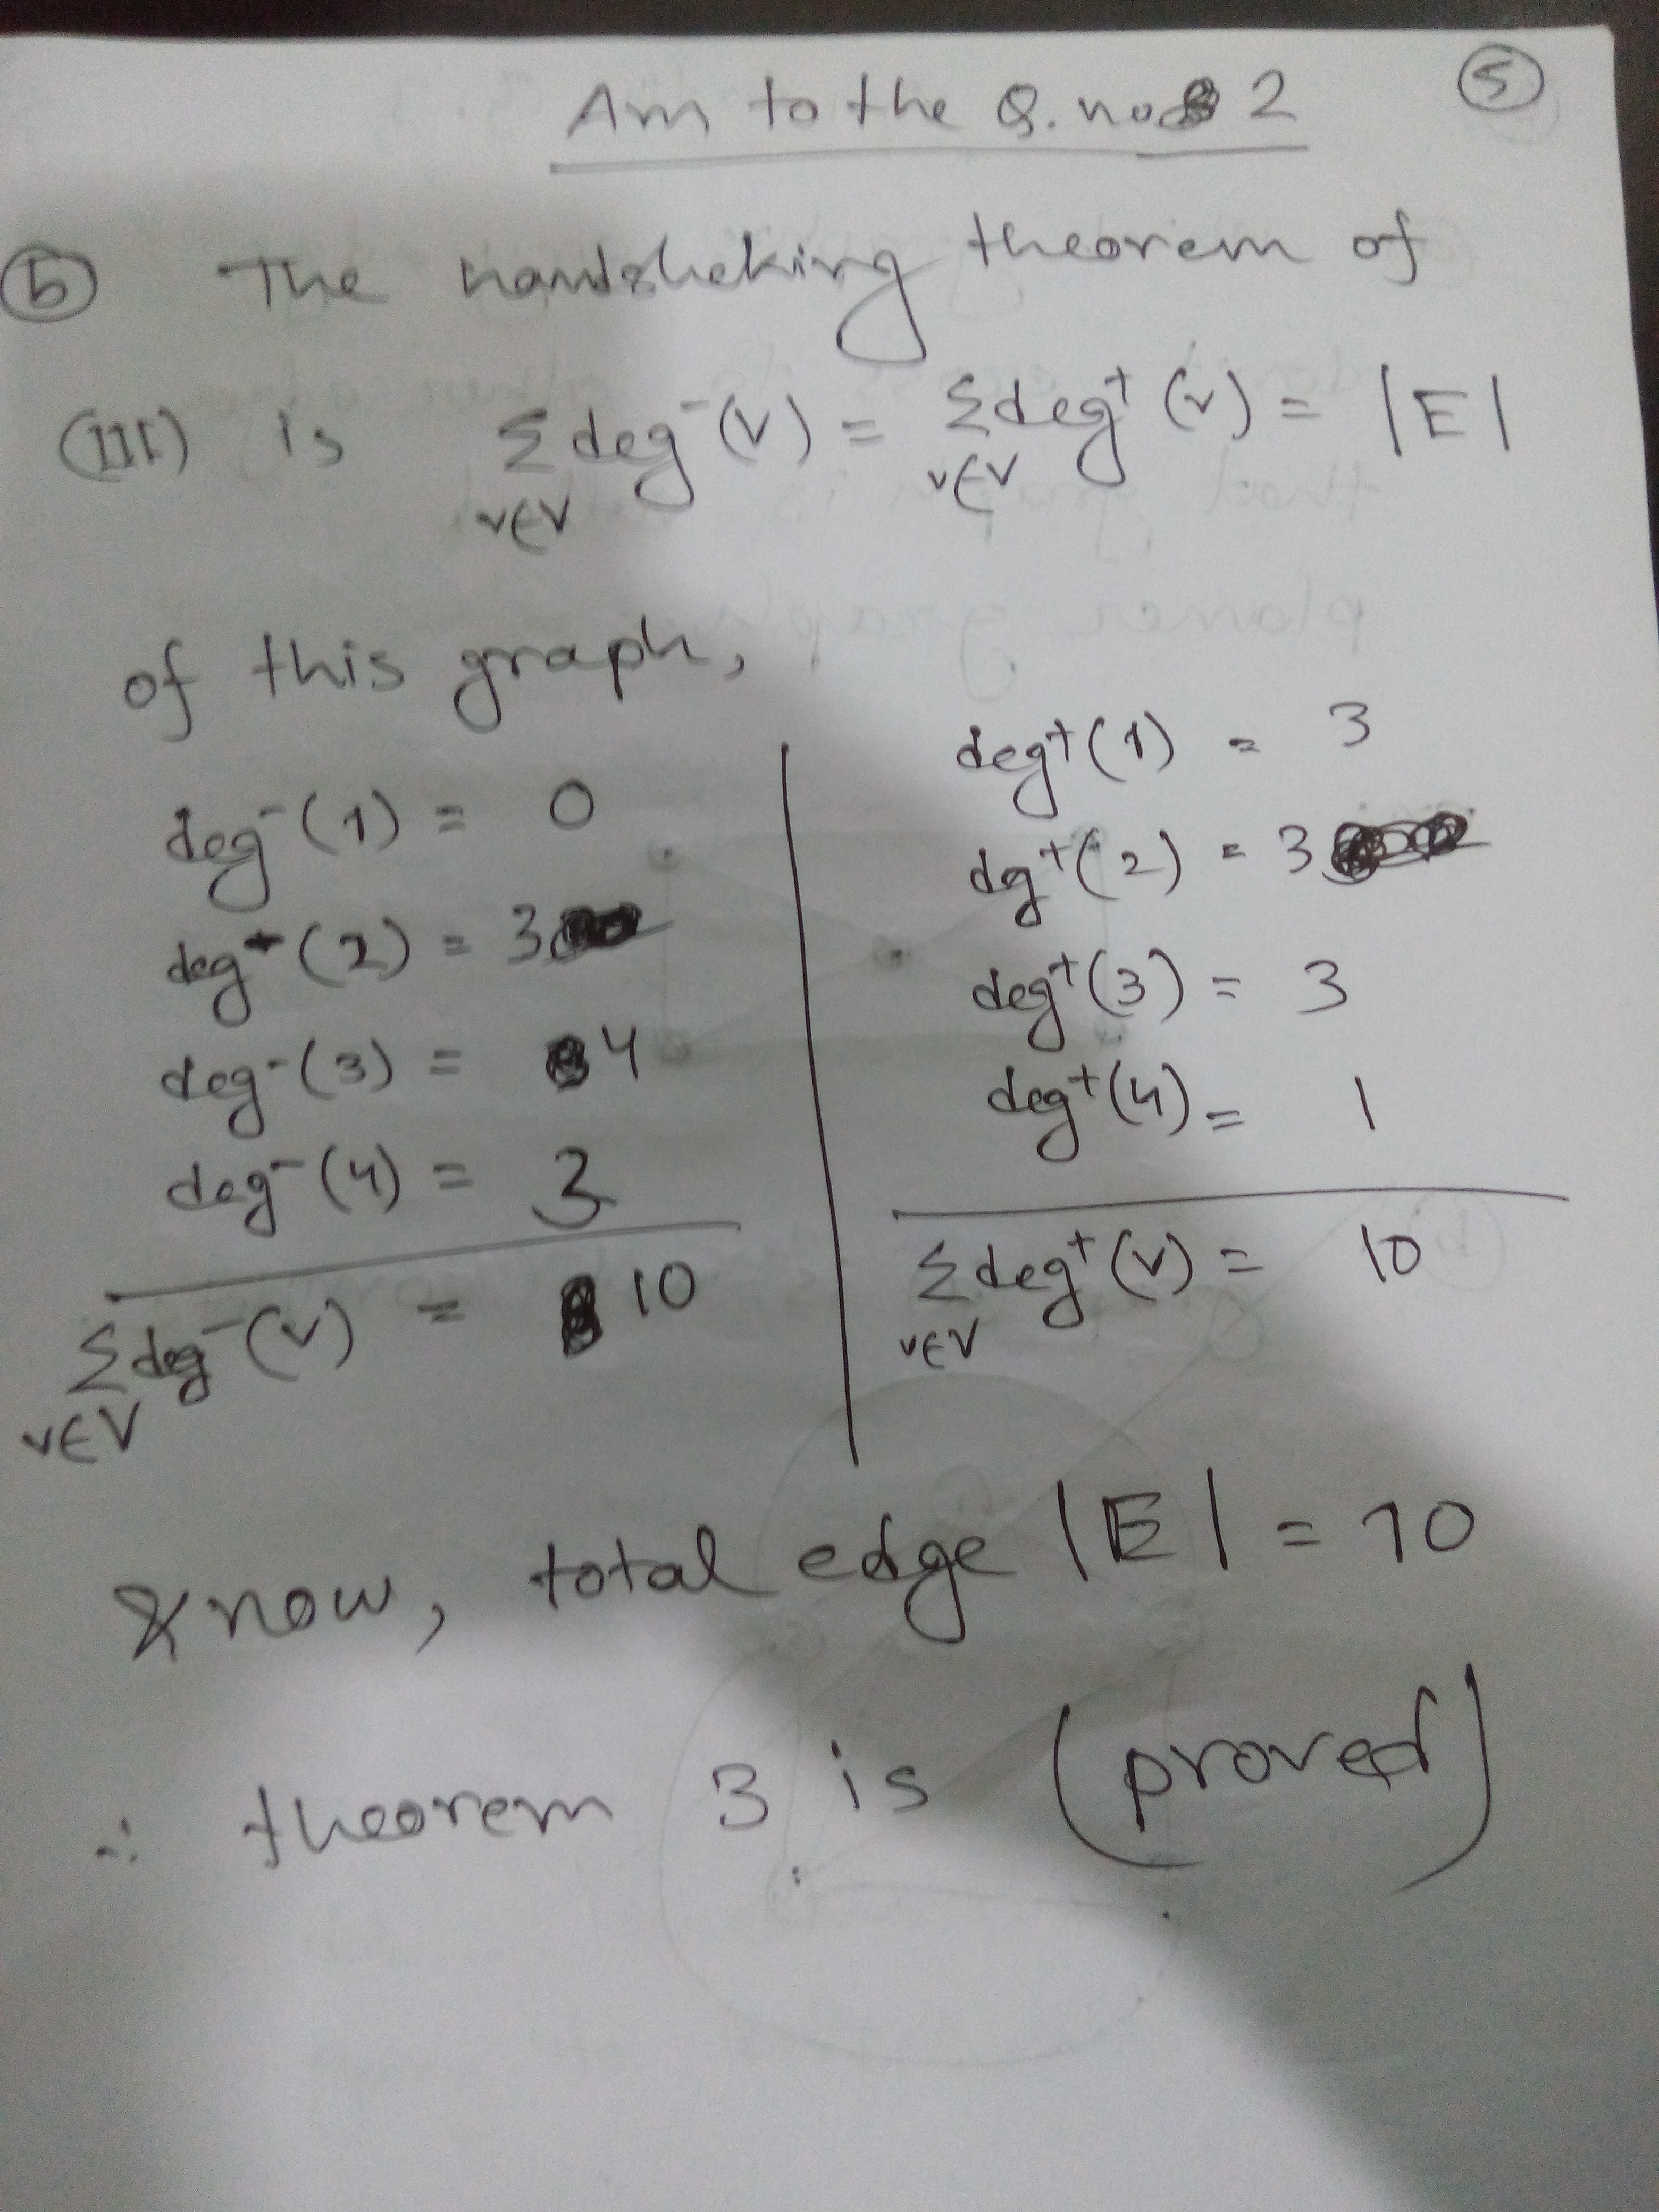 Ans to the Q. no 2
5
b The handsheking theorem of
(III) is Σ deg⁻(v) = Σ deg⁺(v) = |E|
v∈V v∈V
of this graph,
deg⁻(1) = 0
deg⁺(2) = 3
deg⁻(3) = 4
deg⁻(4) = 3
Σ deg⁻(v) = 10
v∈V
deg⁺(1) = 3
dg⁺(2) = 3
deg⁺(3) = 3
deg⁺(4) = 1
Σ deg⁺(v) = 10
v∈V
& now, total edge |E| = 10
∴ theorem 3 is (proved)